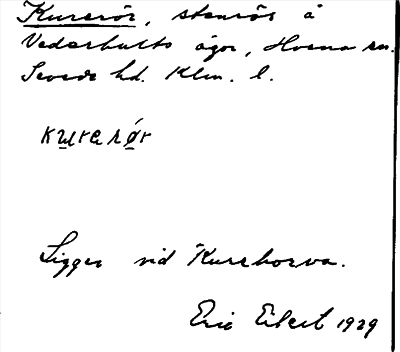 Kurerör, stenrös å
Vederhults ägor, Horna sn.
Sevede hd. Klm. l.
Ligger vid Kurehorva.
Eric Elbert 1929